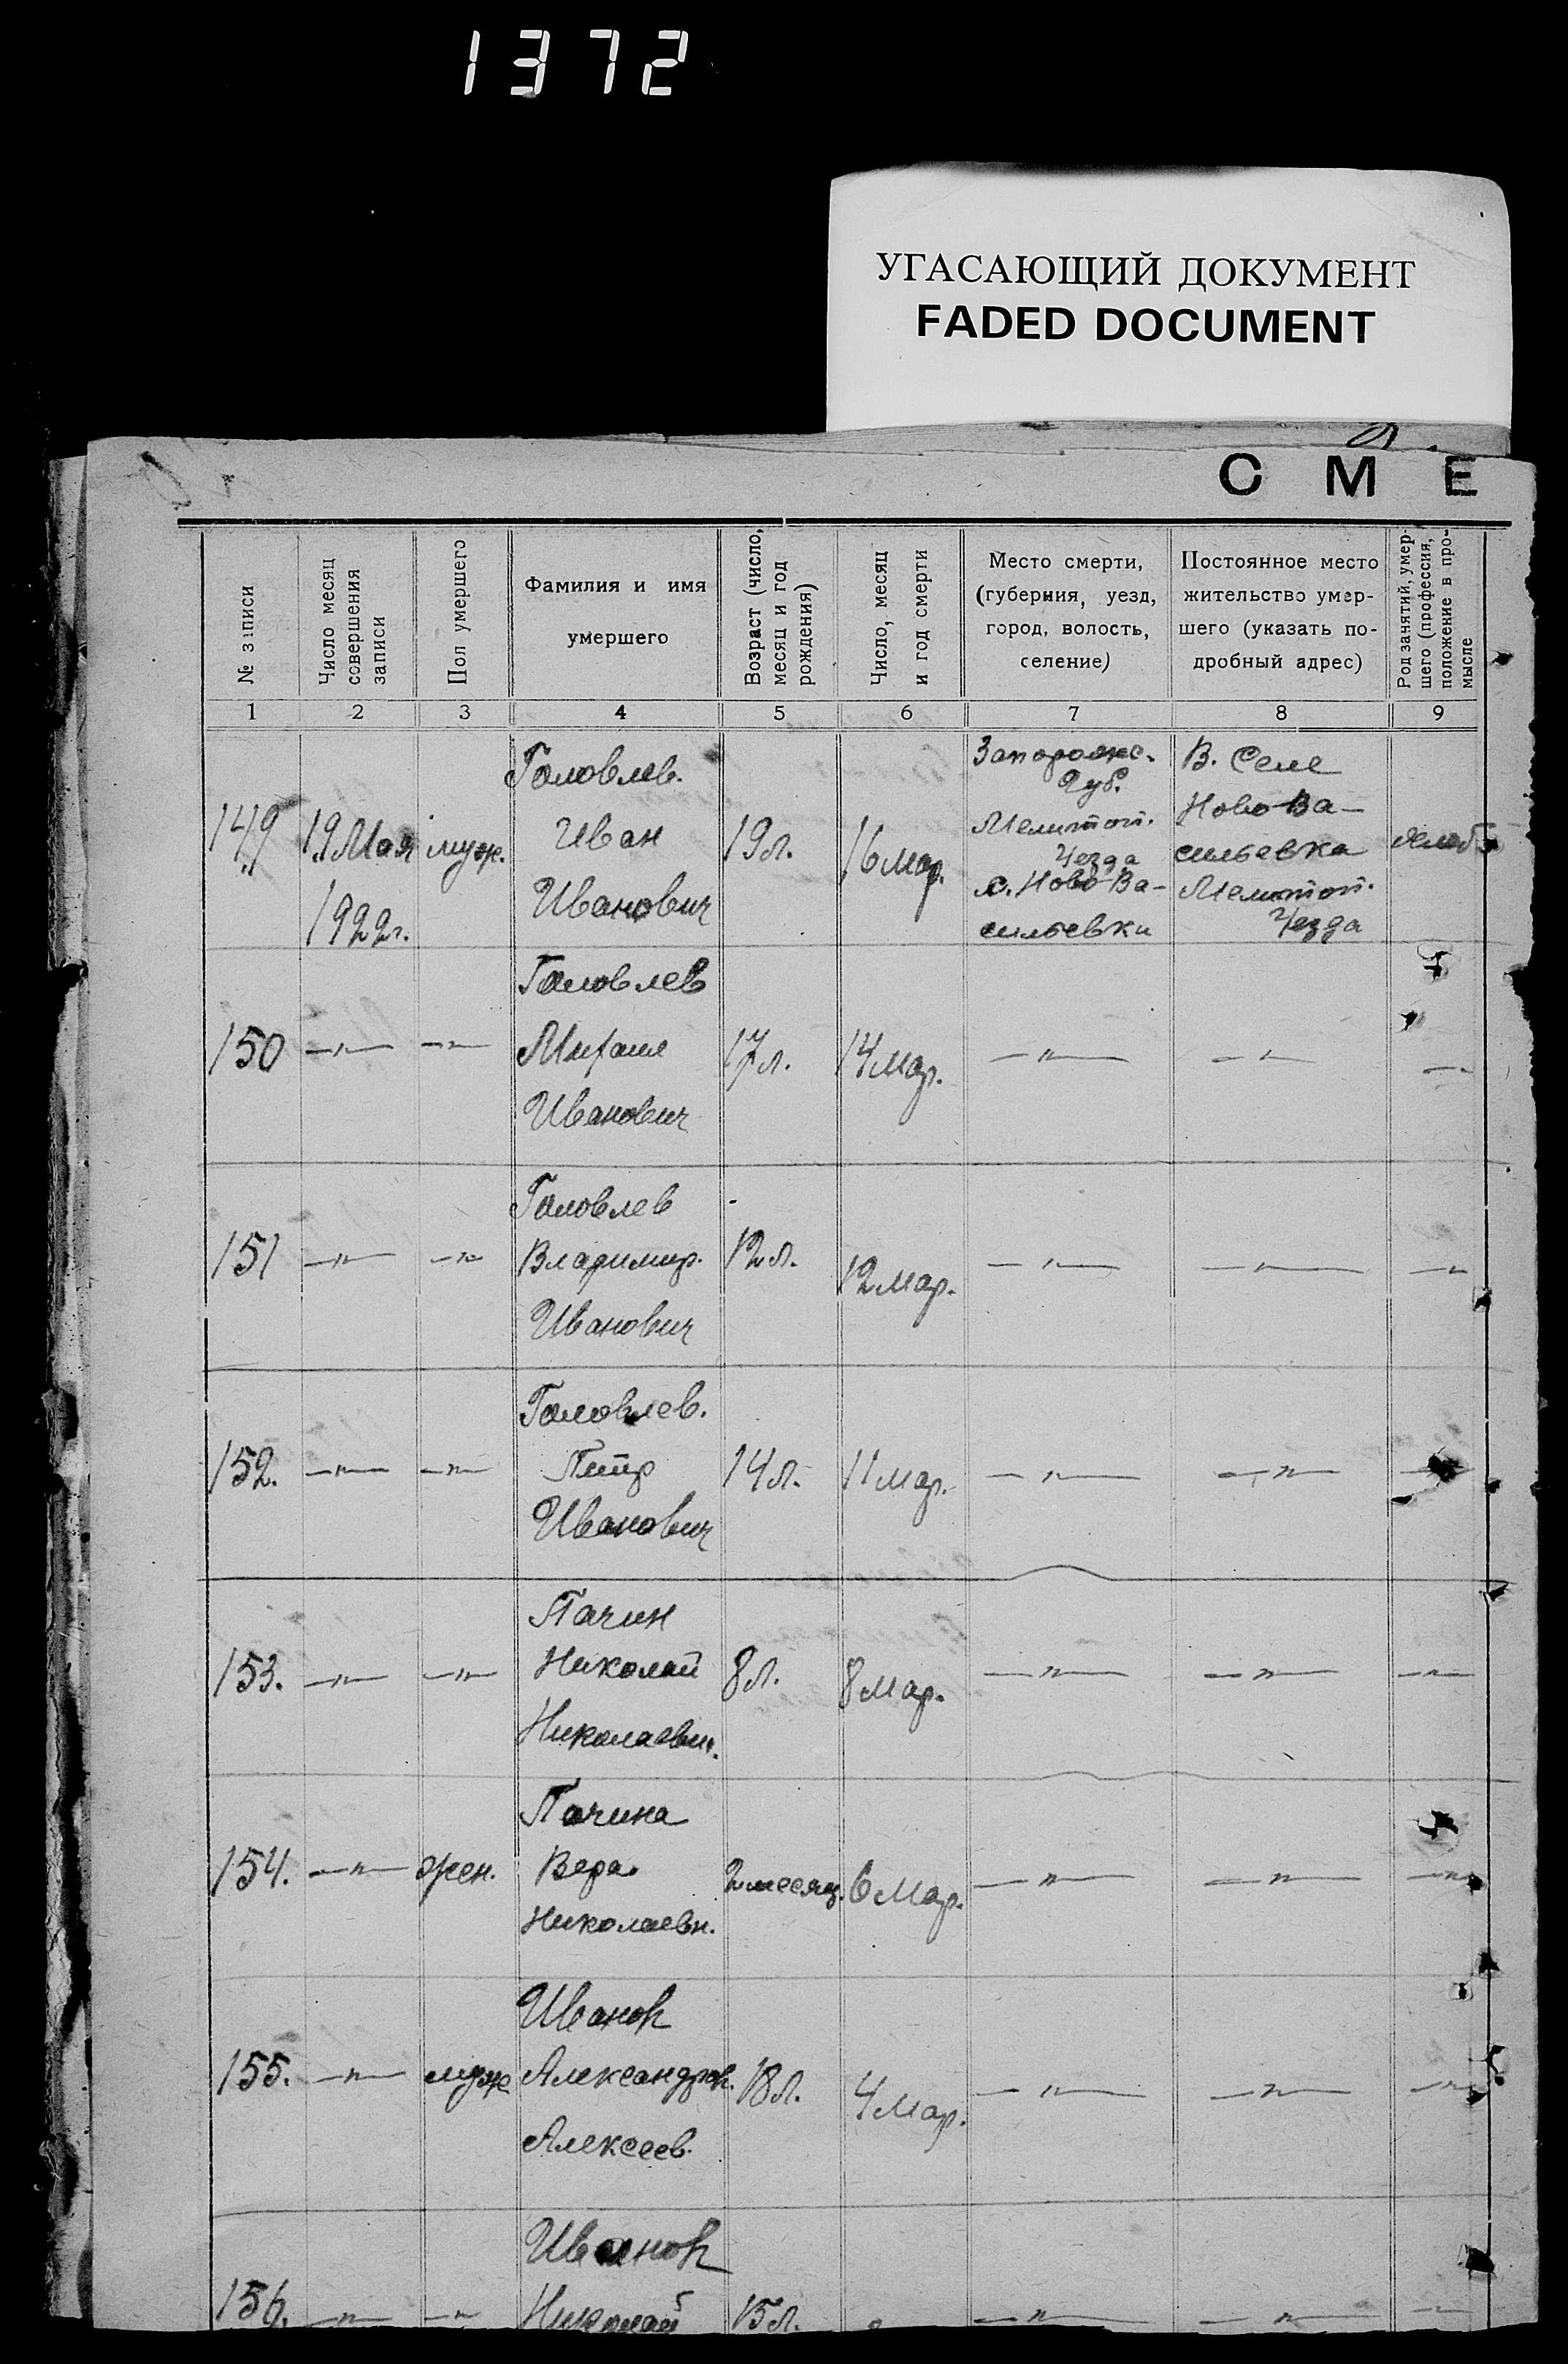 1372
УГАСАЮЩИЙ ДОКУМЕНТ
FADED DOCUMENT
С М Е
№ записи
Число месяц совершения записи
Пол умершего
Фамилия и имя умершего
Возраст (число, месяц и год рождения)
Число, месяц и год смерти
Место смерти, (губерния, уезд, город, волость, селение)
Постоянное место жительство умершего (указать подробный адрес)
Род занятий, умершего (профессия, положение в промысле
1 2 3 4 5 6 7 8 9
Головлев.
Запорожс.
Губ.
В. Селе
149 19 Мая муж. Иван 19 л. 16 Мар.
Мелитоп.
Уезда
Ново-Ва-
сильевка
1922 г. Иванович
с. Ново-Ва-
сильевки
Мелитоп.
Уезда
Головлев
150 —"— —"— Михаил 17 л. 14 Мар. —"— —"— —
Иванович
Головлев
151 —"— —"— Владимир. 12 л. 12 Мар. —"— —"— —"—
Иванович
Головлев.
152. —"— —"— Петр 14 л. 11 Мар. —"— —"—
Иванович
Пачин
153. —"— —"— Николай 8 л. 8 Мар. —"— —"— —"—
Николаевич.
Пачина
154. —"— жен. Вера 2 месяц. 6 Мар. —"— —"— —"—
Николаевн.
Иванов
155. —"— муж Александров. 18 л. 4 Мар. —"— —"— —"—
Алексеев.
Иванов
156. —"— —"— Николай 15 л. —"— —"— —